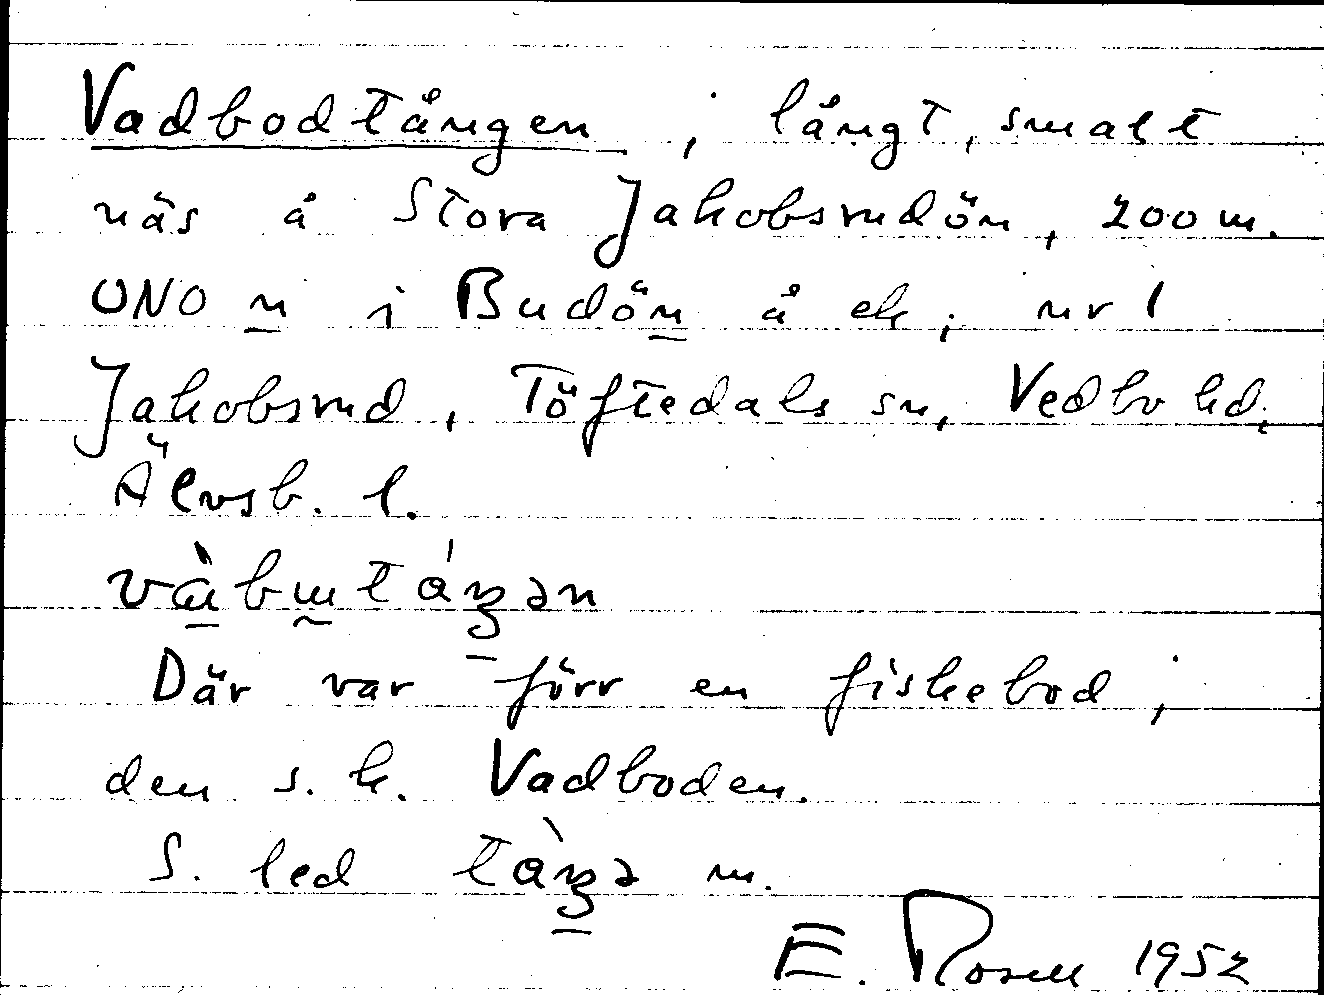 Vadbodtången, långt, smalt
näs å Stora Jakobsrudön, 200 m.
ONO n i Budön å ek; nr 1
Jakobsrud, Töftedals sn, Vedbo hd,
Älvsb. l.
Där var förr en fiskebod,
den s.k. Vadboden.
S. led m.
E. Rosell 1952